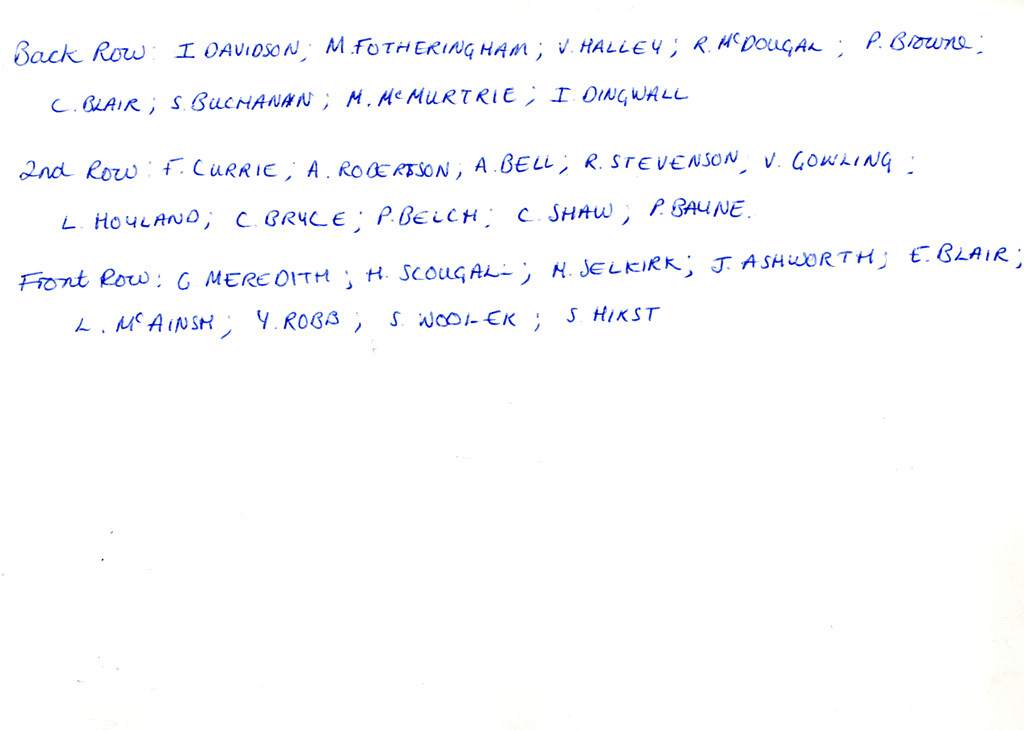 Back Row: I DAVIDSON; M. FOTHERINGHAM; V. HALLEY; R. McDOUGAL; P. Browne;
C. BLAIR; S. BUCHANAN; M. McMURTRIE; I. DINGWALL
2nd Row: F. CURRIE; A. ROBERTSON; A. BELL; R. STEVENSON, V. GOWLING;
L. HOYLAND; C. BRYCE; P. BELCH; C. SHAW; P. BAYNE.
Front Row: G MEREDITH; H. SCOUGAL; H. SELKIRK; J. ASHWORTH; E. BLAIR;
L. McAINSH; Y. ROBB; S. S. HIRST